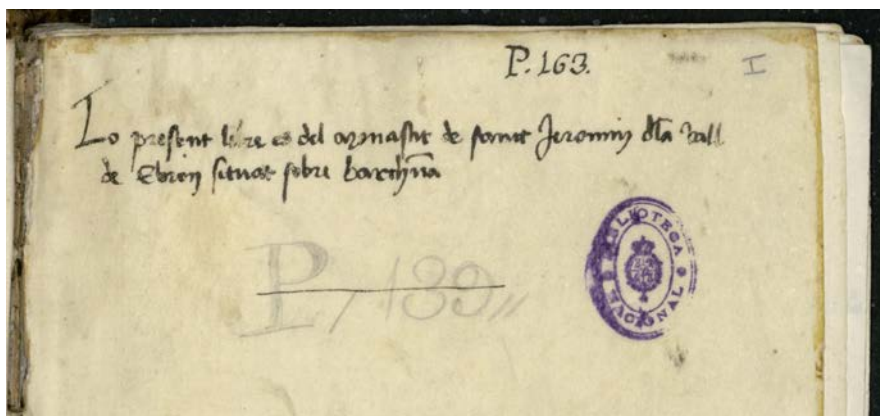 P. 163.
I
Lo present libre es del monastir de sanct Jeronim dla Vall
de Ebron situat sobre barchna
P, 139,,
BIBLIOTECA
NACIONAL